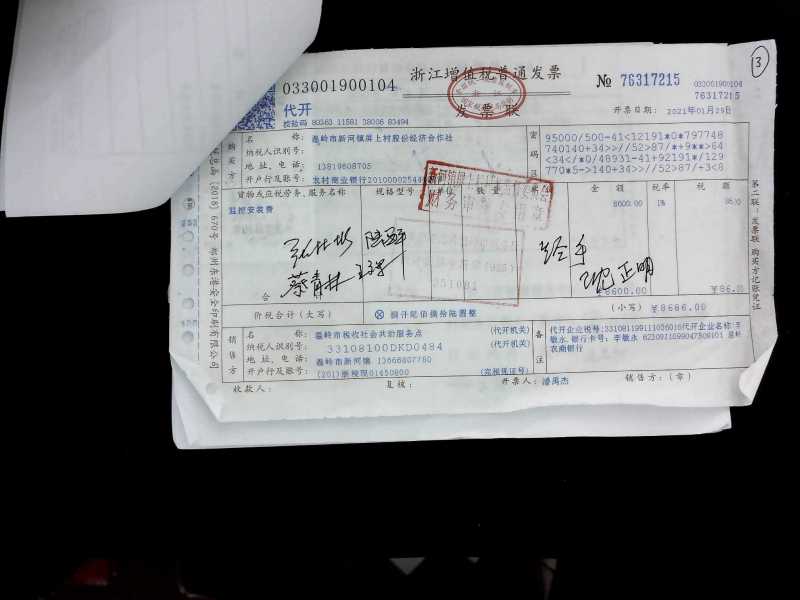 ③
033001900104
浙江增值税普通发票
发票联
№ 76317215
033001900104
76317215
代开
校验码 80363 11581 38006 83494
开票日期: 2021年01月29日
购买方
名 称: 温岭市新河镇屏上村股份经济合作社
纳税人识别号:
地 址、电 话: 13819608705
开户行及账号:
密码区
95000/500-41<12191*0*797748
740140+34>>//52>87/*+9**>64
<34</*0/48931-41+92191*/129
770*5->140+34//>52>87/÷3<8
货物或应税劳务、服务名称 规格型号 单位 数量 金 额 税率 税 额
监控安装费 8600.00 1%
财务
经手
沈正明
蔡青林
合 ¥8600.00 ¥86.0
价税合计(大写) ⊗ 捌仟陆佰捌拾陆圆整 (小写) ¥8686.00
销售方
名 称: 温岭市税收社会共治服务点 (代开机关)
纳税人识别号: 33108100DKD0484 (代开机关)
地 址、电 话: 温岭市新河镇 13666807780
开户行及账号: (201)浙税现01450800 (完税凭证号)
备注
代开企业税号:331081199111056016代开企业名称:李
敏永, 银行卡号: 李敏永 6230911699047309101
农商银行
收款人: 复核: 开票人: 潘禹杰 销售方:(章)
第二联:发票联 购买方记账凭证